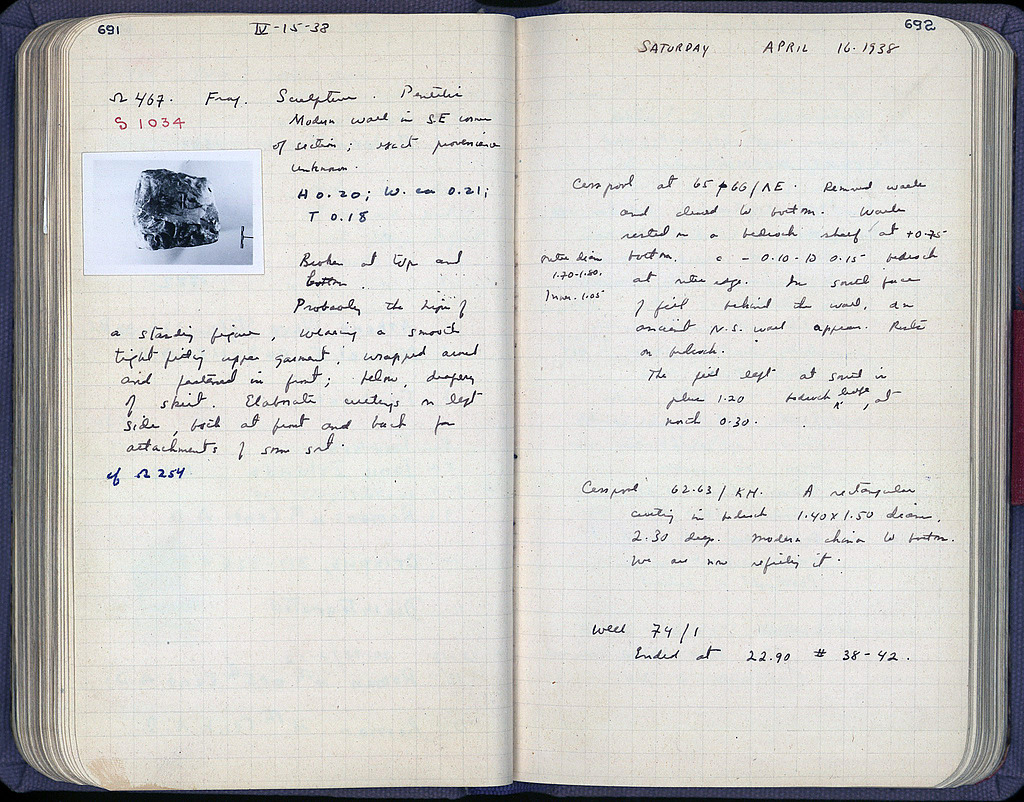 691
IV-15-38
Ω 467. Frag. Sculpture. Pentelic
S 1034
Modern wall in S.E corner
of section; exact provenience
unknown.
H 0.20; W. ca 0.21;
T 0.18
Broken at top and
bottom.
Probably the hips of
a standing figure, wearing a smooth
tight fitting upper garment, wrapped around
and fastened in front; below, drapery
of skirt. Elaborate cuttings on left
side, both at front and back for
attachments of some sort.
cf Ω 254
692
SATURDAY APRIL 16. 1938
Cesspool at 65 66/ΛΕ. Removed walls
and cleared to bottom. Walls
rested on a bedrock shelf at +0.75
bottom. - 0.10 - 0.15 bedrock
at outer edge. In south face
outer diam
1.70-1.80.
Inner. 1.05
of fill behind the wall, an
ancient N.S. wall appears. Rests
on bedrock.
The fill left at south is
plus 1.20 bedrock here, at
north 0.30.
Cesspool 62.63/ΚΗ. A rectangular
cutting in bedrock 1.40 x 1.50 diam.
2.30 deep. Modern china to bottom.
We are now refilling it.
Well 74/
Ended at 22.90 # 38-42.